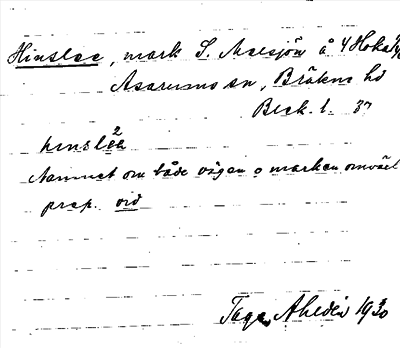 Hinslee, mark S. Melsjön å 4 Hoka
Asarums sn, Bräkne hd
Blek. l. 37
hinslē2
Namnet om både vägen o marken omväxl
prep. vid
Tage Ahldén 1930